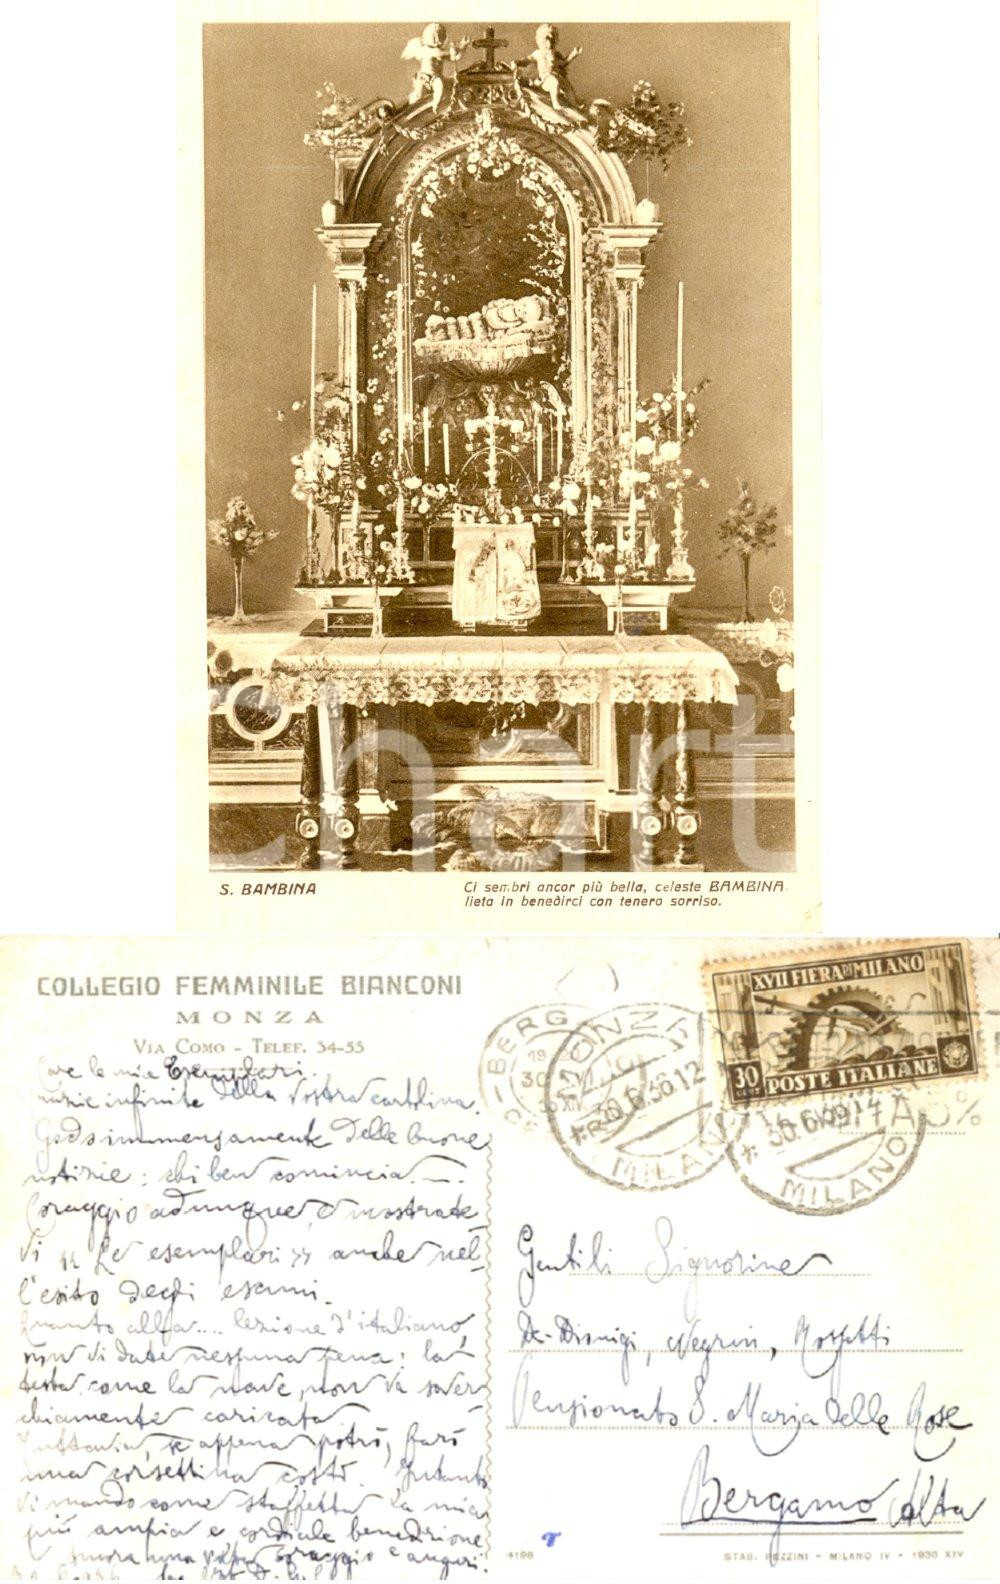 S. BAMBINA
Ci sembri ancor più bella, celeste BAMBINA.
lieta in benedirci con tenero sorriso.
hart
COLLEGIO FEMMINILE BIANCONI
MONZA
VIA COMO - TELEF. 34-55
Care le mie Esemplari.
Grazie infinite della vostra cartolina.
Godo immensamente delle buone
notizie: chi ben comincia.....
Coraggio adunque, e mostrate
vi "Le esemplari" anche nel-
l'esito degli esami.
Quanto alla.... lezione d'italiano,
non vi date nessuna pena: la
testa, come la nave, non va sover-
chiamente caricata.
Tuttavia, se appena potrò, farò
una corsettina costì. Intanto
vi mando come staffetta la mia
più ampia e cordiale benedizione
Ancora una volta coraggio e auguri.
XVII FIERA DI MILANO
30
POSTE ITALIANE
BERG
MONZA
30.6.36.12
MILANO
MILANO
Gentili Signorine
De-Dionigi, Negrin, Rossetti
Pensionato S. Maria delle Rose
Bergamo Alta
4198
STAB. PEZZINI - MILANO IV - 1936 XIV